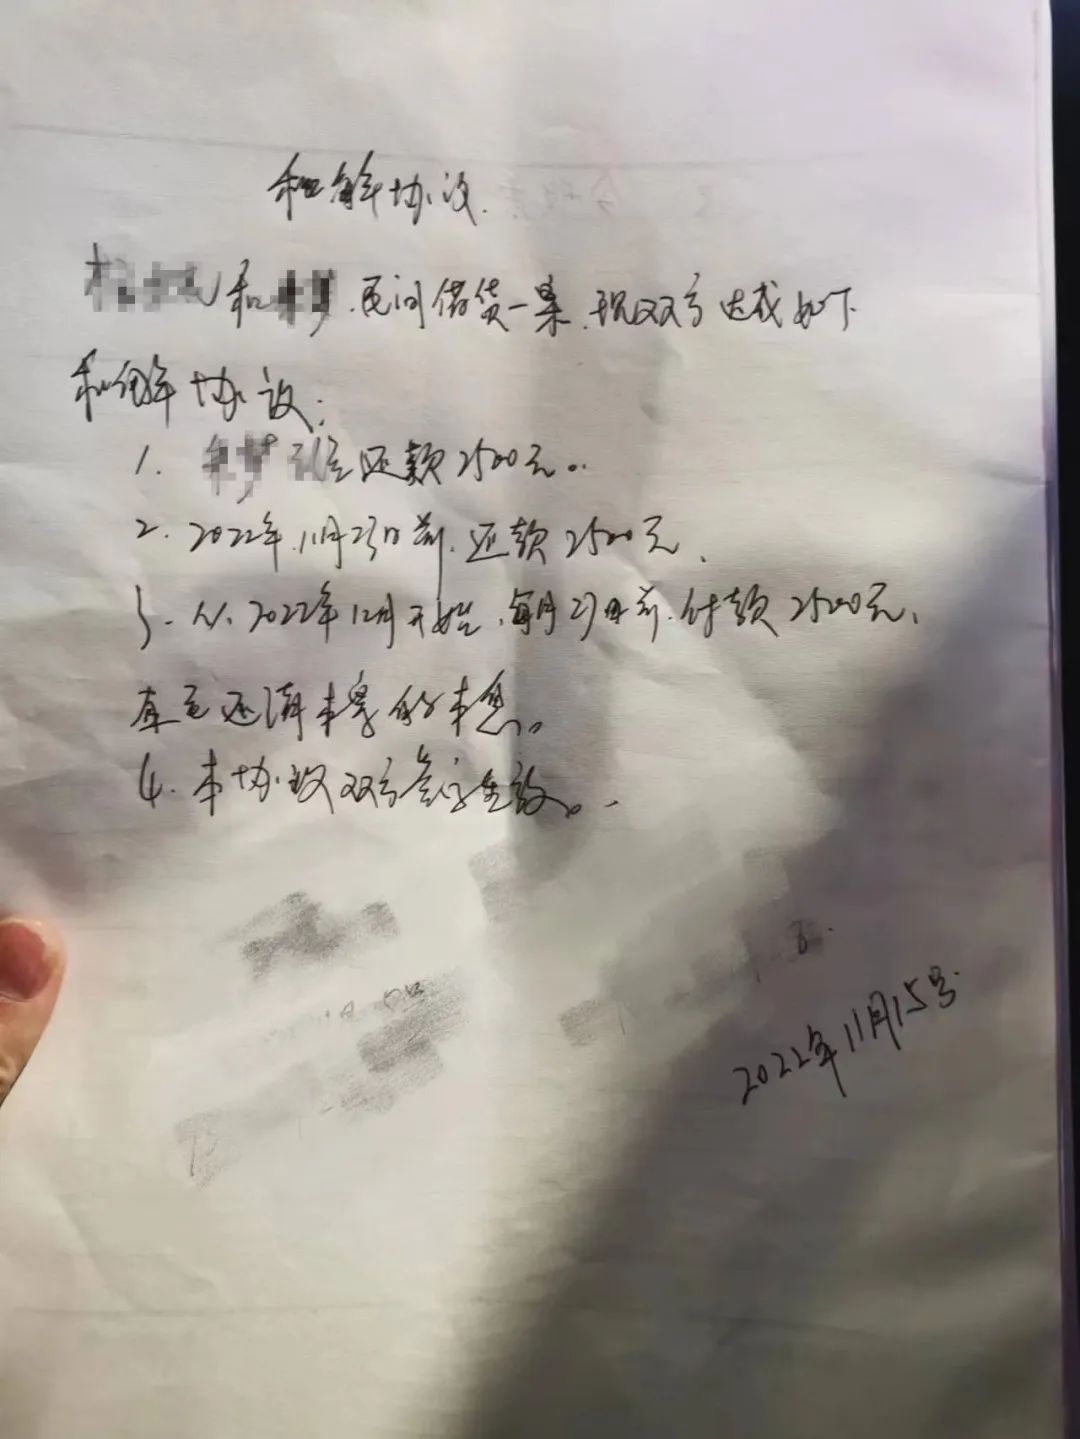 和解协议
和 民间借贷一案,现双方达成如下
和解协议:
1. 还款2500元。
2. 2022年11月23日前.还款2500元.
3. 从2022年12月开始,每月23日前.付款2500元,
直至还清本案的本息。
4. 本协议双方签字生效。
2022年11月15号